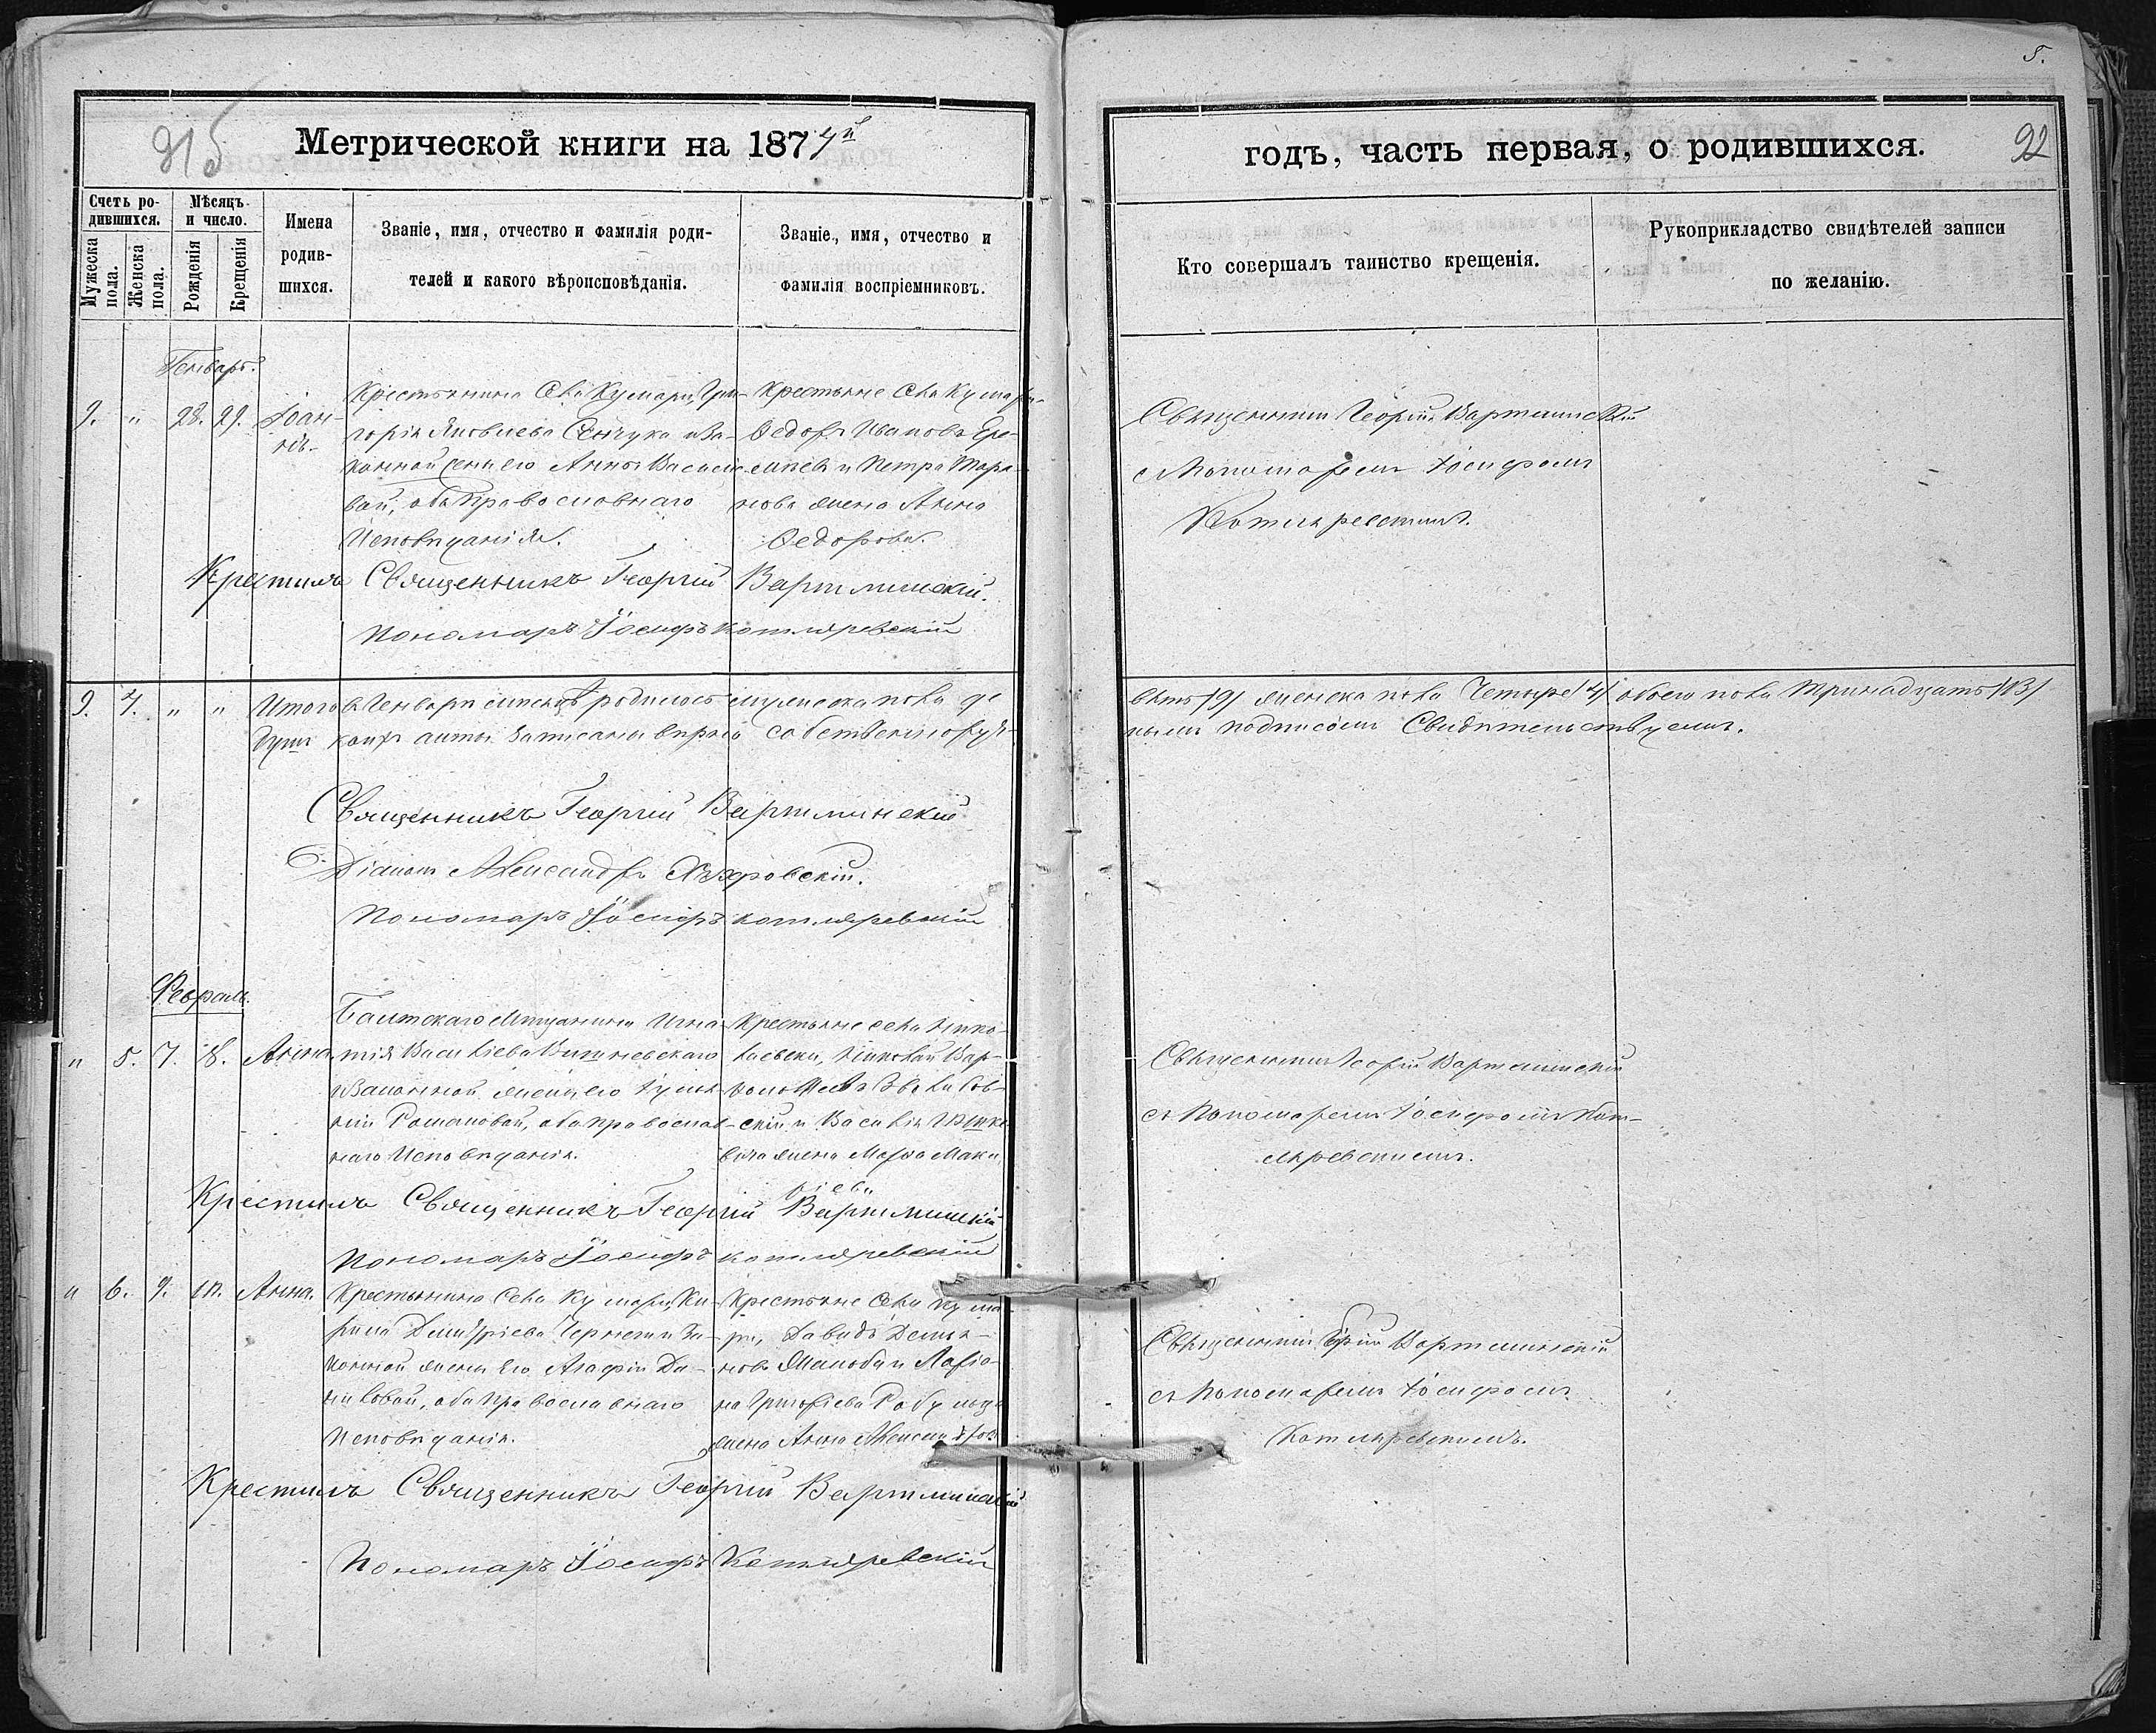 5.
915
Метрической книги на 1874й
годъ, часть первая, о родившихся.
92
Счетъ ро-
дившихся.
Мужеска пола.
Женска пола.
Мѣсяцъ и число.
Рожденія
Крещенія
Имена
родив-
шихся.
Званіе, имя, отчество и фамилія роди-
телей и какого вѣроисповѣданія.
Званіе, имя, отчество и
фамилія воспріемниковъ.
Кто совершалъ таинство крещенія.
Рукоприкладство свидѣтелей записи
по желанію.
Генварь.
9. " 28. 29. Іоан-
нъ.
Крестьянина села Кумари, Гри-
горія Яковлева Сенчука и За-
конной жены его Анны Василье-
вой, оба Православнаго
Исповѣданія.
Крестьяне села Кумари
Ѳедоръ Ивановъ
и Петра
нова жена Анна
Ѳедорова.
Священникъ Георгій Вартминскій
съ Пономаремъ Іосифомъ
Котляревскимъ.
Крестилъ Священникъ Георгій Вартминскій.
Пономарь Іосифъ Котляревскій
9. 4. " " Итого въ Генварѣ мѣсяцѣ родилось мужеска пола де
вять /9/ женска пола Четыре /4/ обоего пола Тринадцать /13/
душъ коихъ акты записаны вѣрно собственноруч-
нымъ подписомъ Свидѣтельствуемъ.
Священникъ Георгій Вартминскій
Діаконъ Александръ
Пономарь Іосифъ Котляревскій
Февраль.
" 5. 7. 8. Анна
Балтскаго Мѣщанина Игна-
тія Васильева Вишневскаго
и Законной жены его
Романовой, оба православ-
наго Исповѣданія.
Крестьяне села
Вар-
и Василія
жена Марѳа Маки
ріева
Священникъ Георгій Вартминскій
съ Пономаремъ Іосифомъ Кот-
ляревскимъ.
Крестилъ Священникъ Георгій Вартминскій
Пономарь Іосифъ Котляревскій
" 6. 9. 10. Анна.
Крестьянина села Кумари, Ки-
рила Димитріева и За-
конной жены его Агафіи Да-
ниловой, оба Православнаго
Исповѣданія.
Крестьяне села Кума-
ри, Давидъ Демья-
новъ и Ларіо-
на Григорьева
жена Анна
Священникъ Георгій Вартминскій
съ Пономаремъ Іосифомъ
Котляревскимъ.
Крестилъ Священникъ Георгій Вартминскій
Пономарь Іосифъ Котляревскій